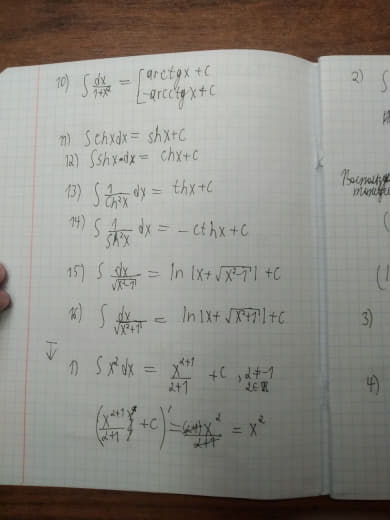 10) ∫ dx/(1+x²) = [ arctgx + C
-arcctgx + C
11) ∫ chxdx = shx + C
12) ∫ shx·dx = chx + C
13) ∫ 1/(ch²x) dx = thx + C
14) ∫ 1/(sh²x) dx = -cthx + C
15) ∫ dx/√(x²-1) = ln |x + √(x²-1)| + C
16) ∫ dx/√(x²+1) = ln |x + √(x²+1)| + C
↓
1) ∫ x^2 dx = x^(2+1)/(2+1) + C, 2≠-1
2∈ℝ
(x^(2+1)/(2+1) + C)' = (2+1)x^2/(2+1) = x^2
2) ∫
3)
4)